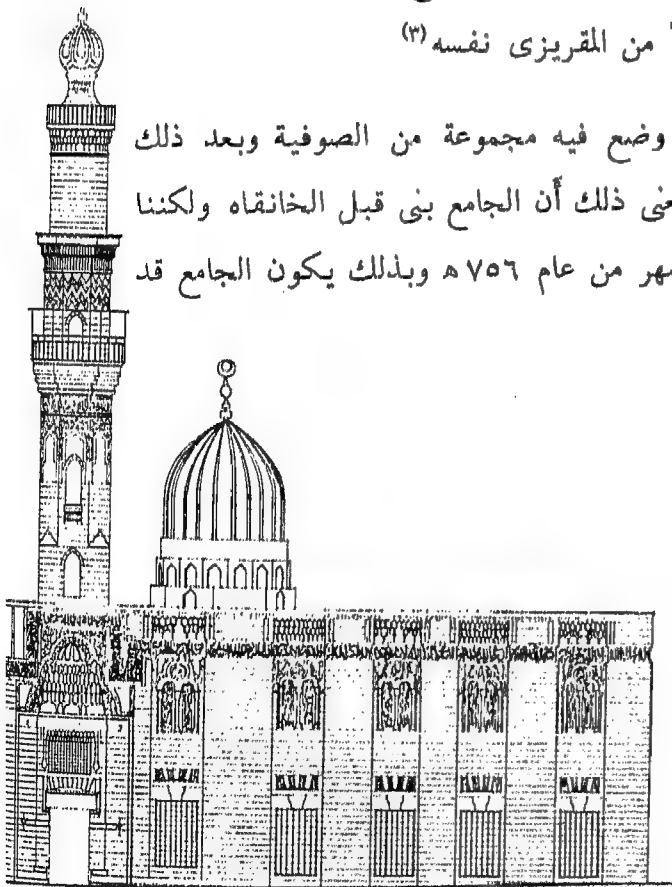 من المقريزى نفسه (٣)
وضع فيه مجموعة من الصوفية وبعد ذلك
ذلك أن الجامع بنى قبل الخانقاه ولكننا
من عام ٧٥٦ ه وبذلك يكون الجامع قد